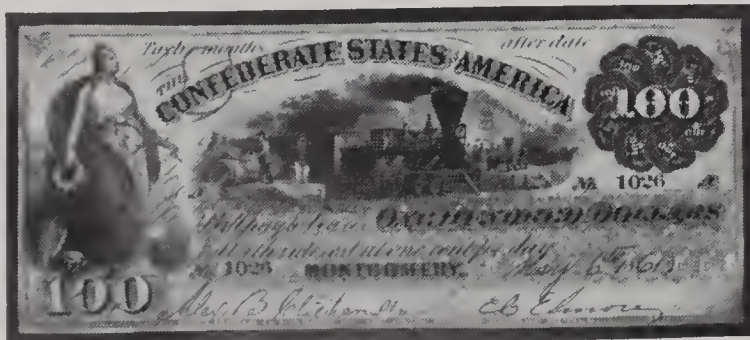 Twelve months after date
THE
CONFEDERATE STATES AMERICA
100
No 1026 A
ONE HUNDRED DOLLARS
with interest at one cent per day
No 1026 MONTGOMERY, May 6th
100
Alex B Clitherall C B Elmore